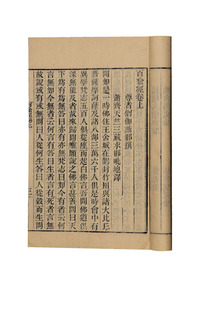 百喻經卷上
尊者僧伽斯那撰
蕭齊天竺三藏求那毗地譯
聞如是一時佛住王舍城在鵲封竹園與諸大比丘
菩薩摩訶薩及諸八部三萬六千人俱是時會中有
異學梵志五百人俱從座而起白佛言吾聞佛道洪
深無能及者故來歸問唯願說之佛言甚善問曰天
下為有為無答曰亦有亦無梵志曰如今有者云何
言無如今無者云何言有答曰生者言有死者言無
故說或有或無問曰人從何生答曰人從穀而生問